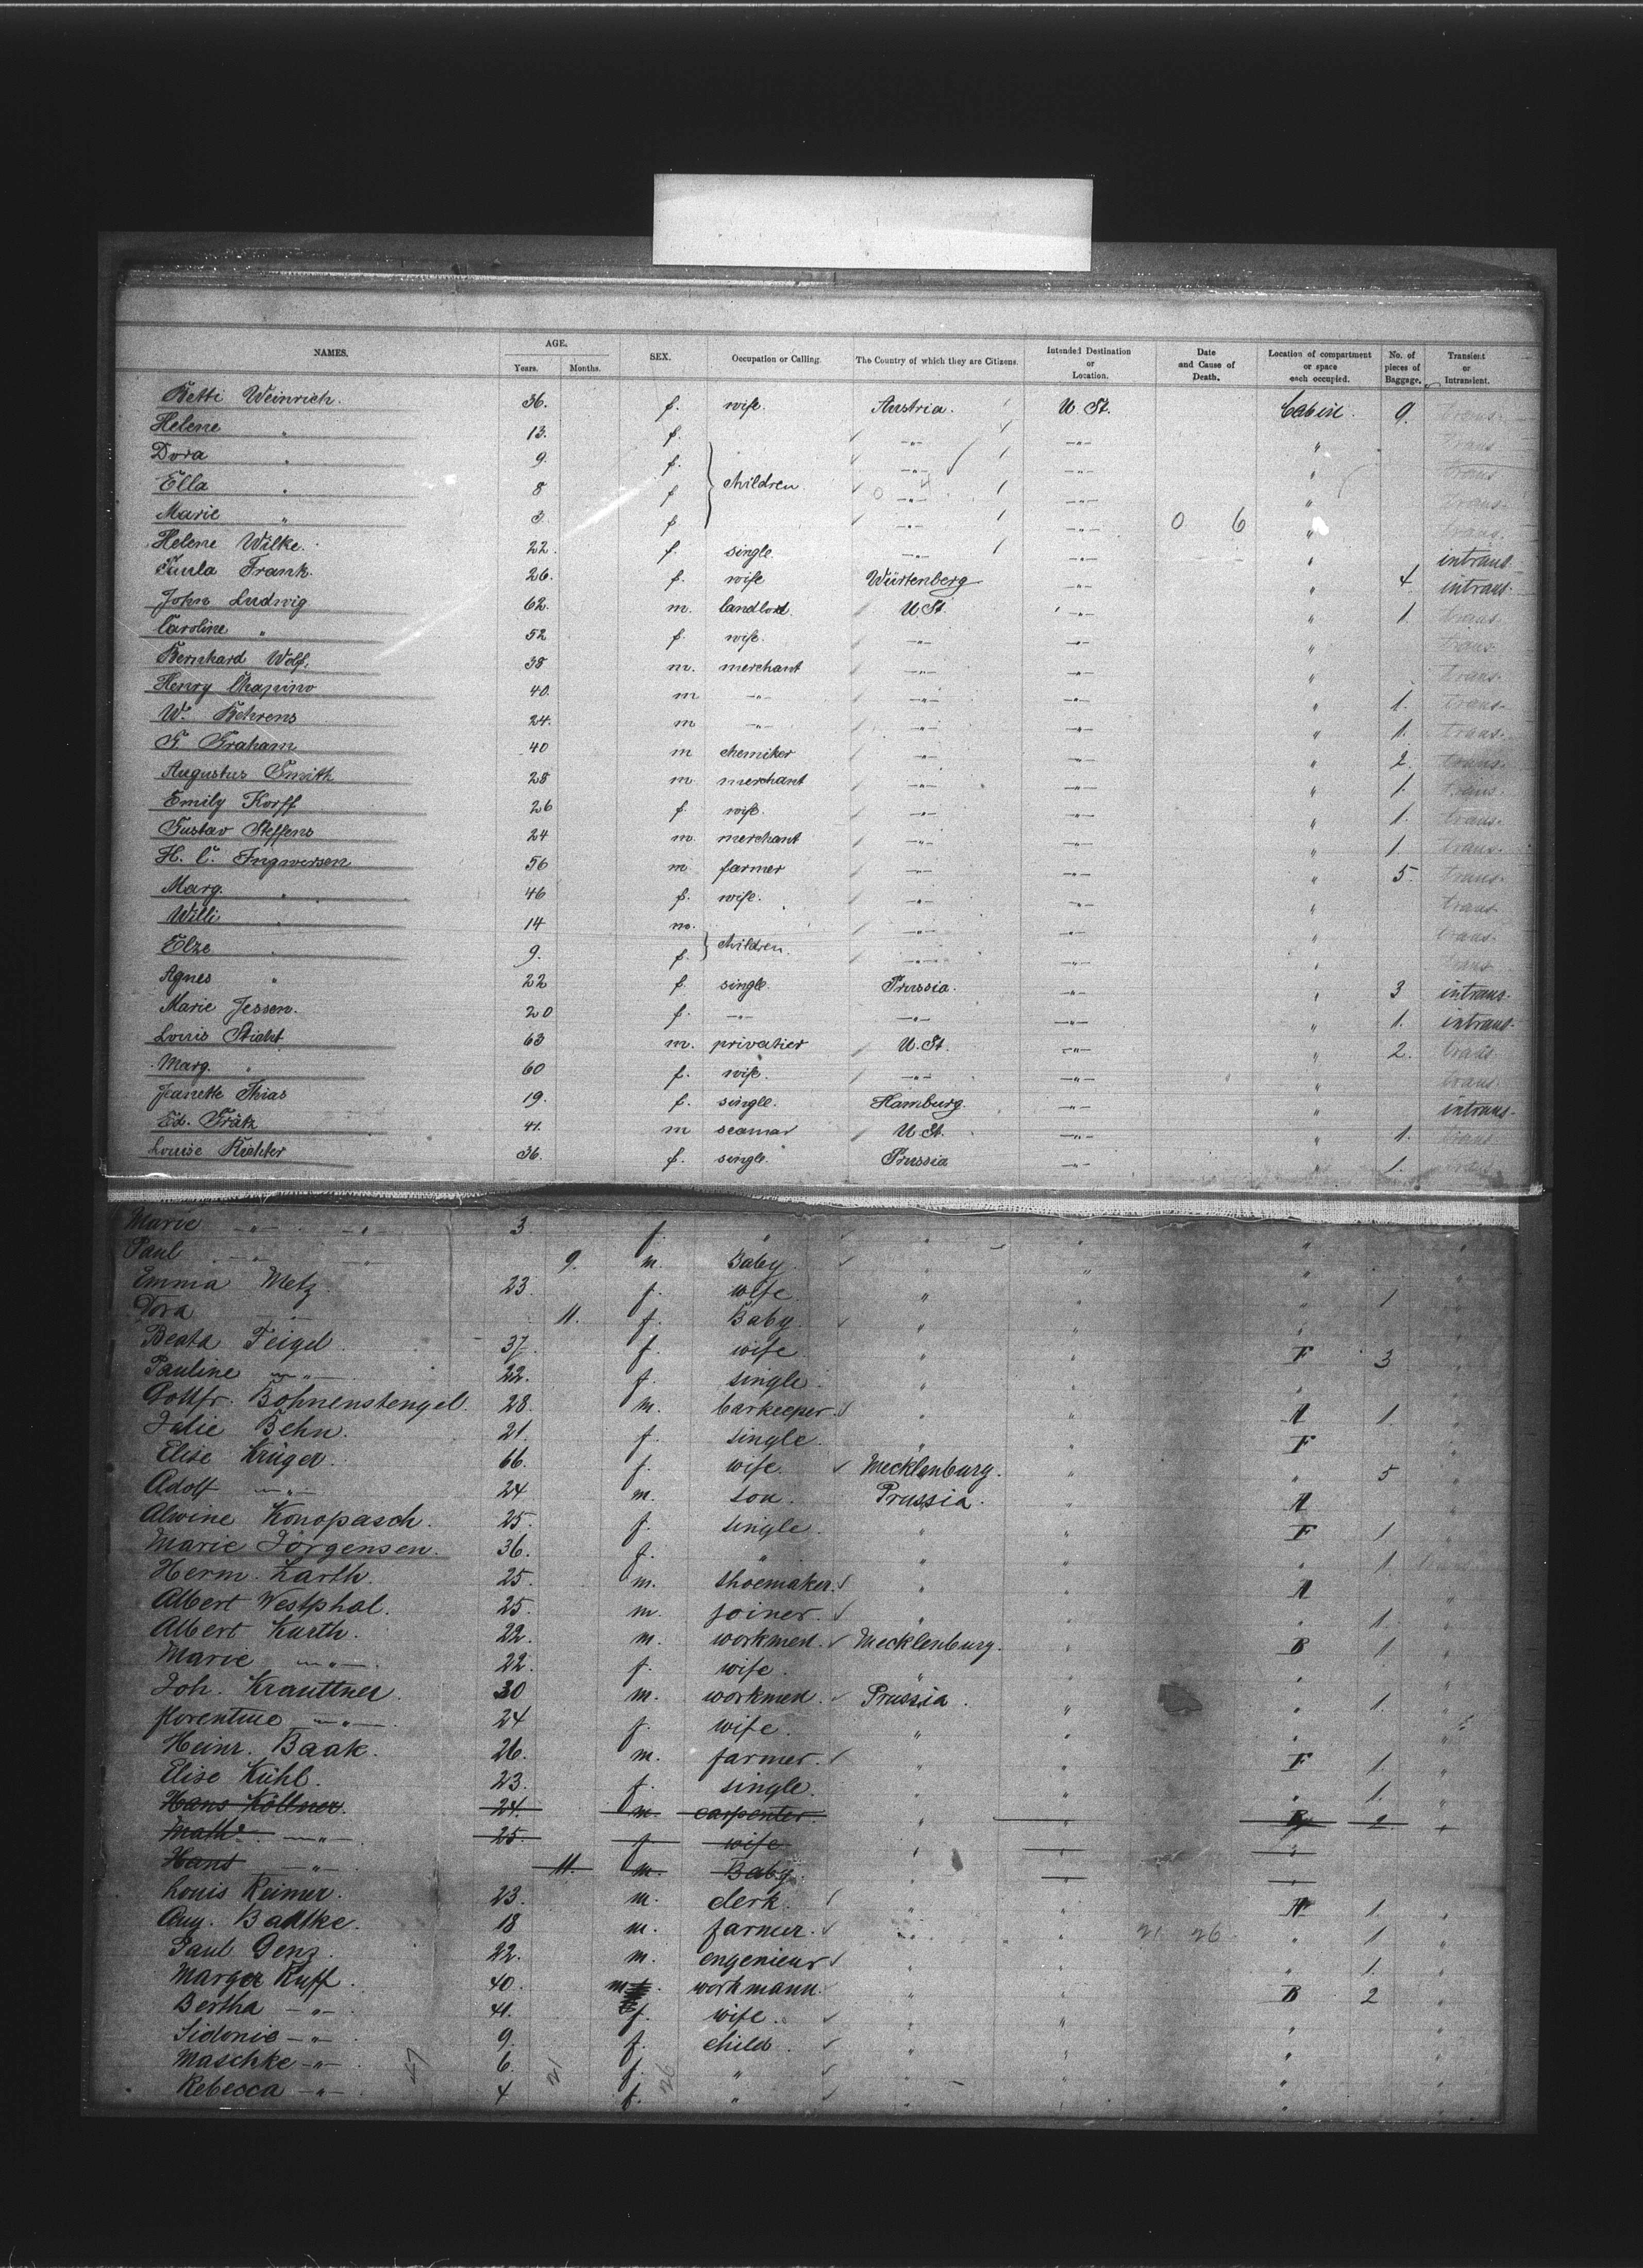 NAMES. AGE. Years. Months. SEX. Occupation or Calling. The Country of which they are Citizens. Intended Destination or Location. Date and Cause of Death. Location of compartment or space each occupied. No. of pieces of Baggage. Transient or Intransient.
Betti Weinrich. 36. f. wife. Austria. U. St. Cabin. 9. trans.
Helene " 13. f. -"- -"- " trans
Dora " 9. f. -"- -"- " trans
Ella " 8 f children -"- -"- " trans.
Marie " 3. f -"- -"- 0 6 " trans.
Helene Wilke. 22. f. single. -"- -"- " intrans.
Paula Frank. 26. f. wife Würtenberg -"- " 4. intrans.
John Ludwig 62. m. landlord. U St. -"- " 1. trans.
Caroline " 52 f. wife. -"- -"- " trans.
Bernhard Wolf. 38 m. merchant -"- -"- " trans.
Henry Chapino 40. m -"- -"- -"- " 1. trans.
W. Behrens 24. m -"- -"- -"- " 1. trans.
G Graham 40 m chemiker -"- -"- " 2. trans.
Augustus Smith 28 m merchant -"- -"- " 1. trans.
Emily Korff 26 f. wife. -"- -"- " 1. trans.
Gustav Steffens 24 m. merchant -"- -"- " 1. trans.
H. C. Ingwersen 56 m farmer -"- -"- " 5. trans.
Marg. " 46 f. wife. -"- -"- " trans.
Willi " 14 m. -"- -"- " trans.
Elze " 9. f. children. -"- -"- " trans
Agnes " 22 f. single. Prussia. -"- " 3 intrans.
Marie Jessen. 20 f. -"- -"- -"- " 1. intrans.
Louis Sticht 63 m. privatier U. St. -"- " 2. trans
Marg. " 60 f. wife. -"- -"- " trans.
Jeanette Thias 19. f. single. Hamburg. -"- " intrans.
Ed. Grätz 41. m seaman U St. -"- " 1. trans
Louise Richter 36. f. single. Prussia -"- " 1. trans
Marie -"- -"- 3. f. " " " " "
Paul -"- -"- 9. m. Baby. " " " "
Emma Metz. 23. f. wife. " " " 1 "
Dora -"- 11. f. Baby. " " " "
Beata Feigel 37. f. wife. " " F 3 "
Pauline -"- 22. f. single. " " " "
Gottfr. Bohnenstengel. 28. m. barkeeper. " " A 1. "
Julie Behn. 21. f. single. " " F "
Elise Krüger. 66. f. wife. Mecklenburg. " " 5 "
Adolf -"- 24 m. son. Prussia. " A "
Alwine Konopasch. 25. f. single. " " F 1. "
Marie Jörgensen. 36. f. " " " " 1. trans
Herm. Zarth. 25. m. shoemaker. " " A "
Albert Westphal. 25. m. joiner. " " " 1. "
Albert Kurth. 22. m. workmen. Mecklenburg. " B 1. "
Marie -"- 22. f. wife. " " " "
Joh. Krauttner. 30 m. workmen. Prussia. " " 1. "
florentine -"- 24 f. wife. " " " "
Heinr. Baak. 26. m. farmer. " " F 1. "
Elise Kühl. 23. f. single. " " " 1. "
Hans Köllner. 24. m. carpenter. " " B 2. "
Mathe. -"- 25. f. wife " " "
Hans -"- 11. m. Baby. " " "
Louis Reimer. 23. m. clerk. " " A 1. "
Aug. Baltke. 18 m. farmer. " " 21 26 " 1 "
Paul Genz. 22. m. engenieur " " " 1. "
Marger Ruff. 40. m. workmann. " " B 2 "
Bertha -"- 41. f. wife. " " " "
Sidonie -"- 9. f. child. " " " "
Maschke -"- 6. f. " " " " "
Rebecca -"- 4 f. " " " " "
47 21 26